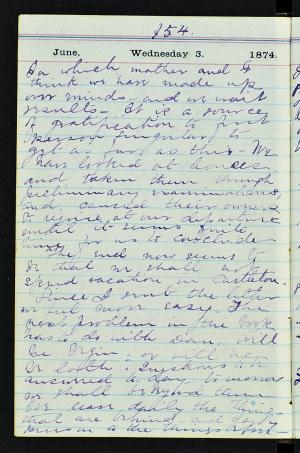 154.
June, Wednesday 3. 1874.
For which mother and I
think we have made up
our minds and we wait
results - It is a source
of gratification to
person
got as far as this - We
have looked at houses
and taken them through
preliminary examinations
and caused their owners
to rejoice at our departure
until it seems quite
time for us to conclude
The end now seems to
be that we shall not
spend vacation in Castleton.
Since I sent the letter
we feel more easy. The
next problem in the book
has to do with Dan, will
he begin, or will he
be loth. Questions to be
answered a day to-morrow
we shall be beyond them.
We leave daily the things
that are behind and daily
to the things before